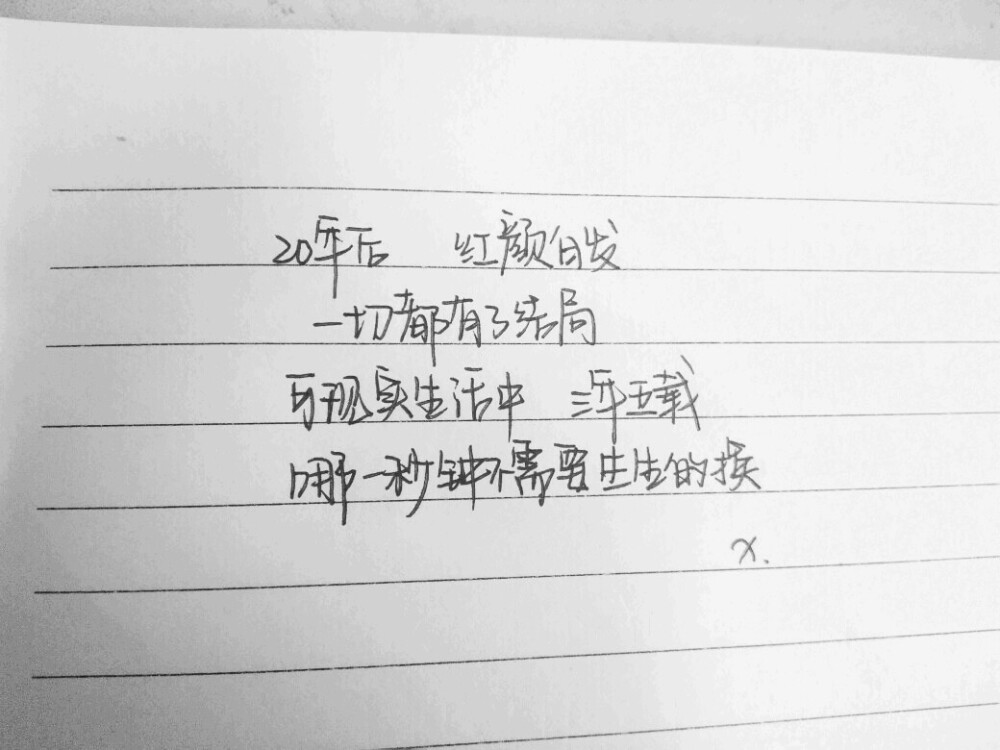 20年后 红颜白发
一切都有了结局
可现实生活中 三年五载
哪一秒钟不需要生生的挨
x.